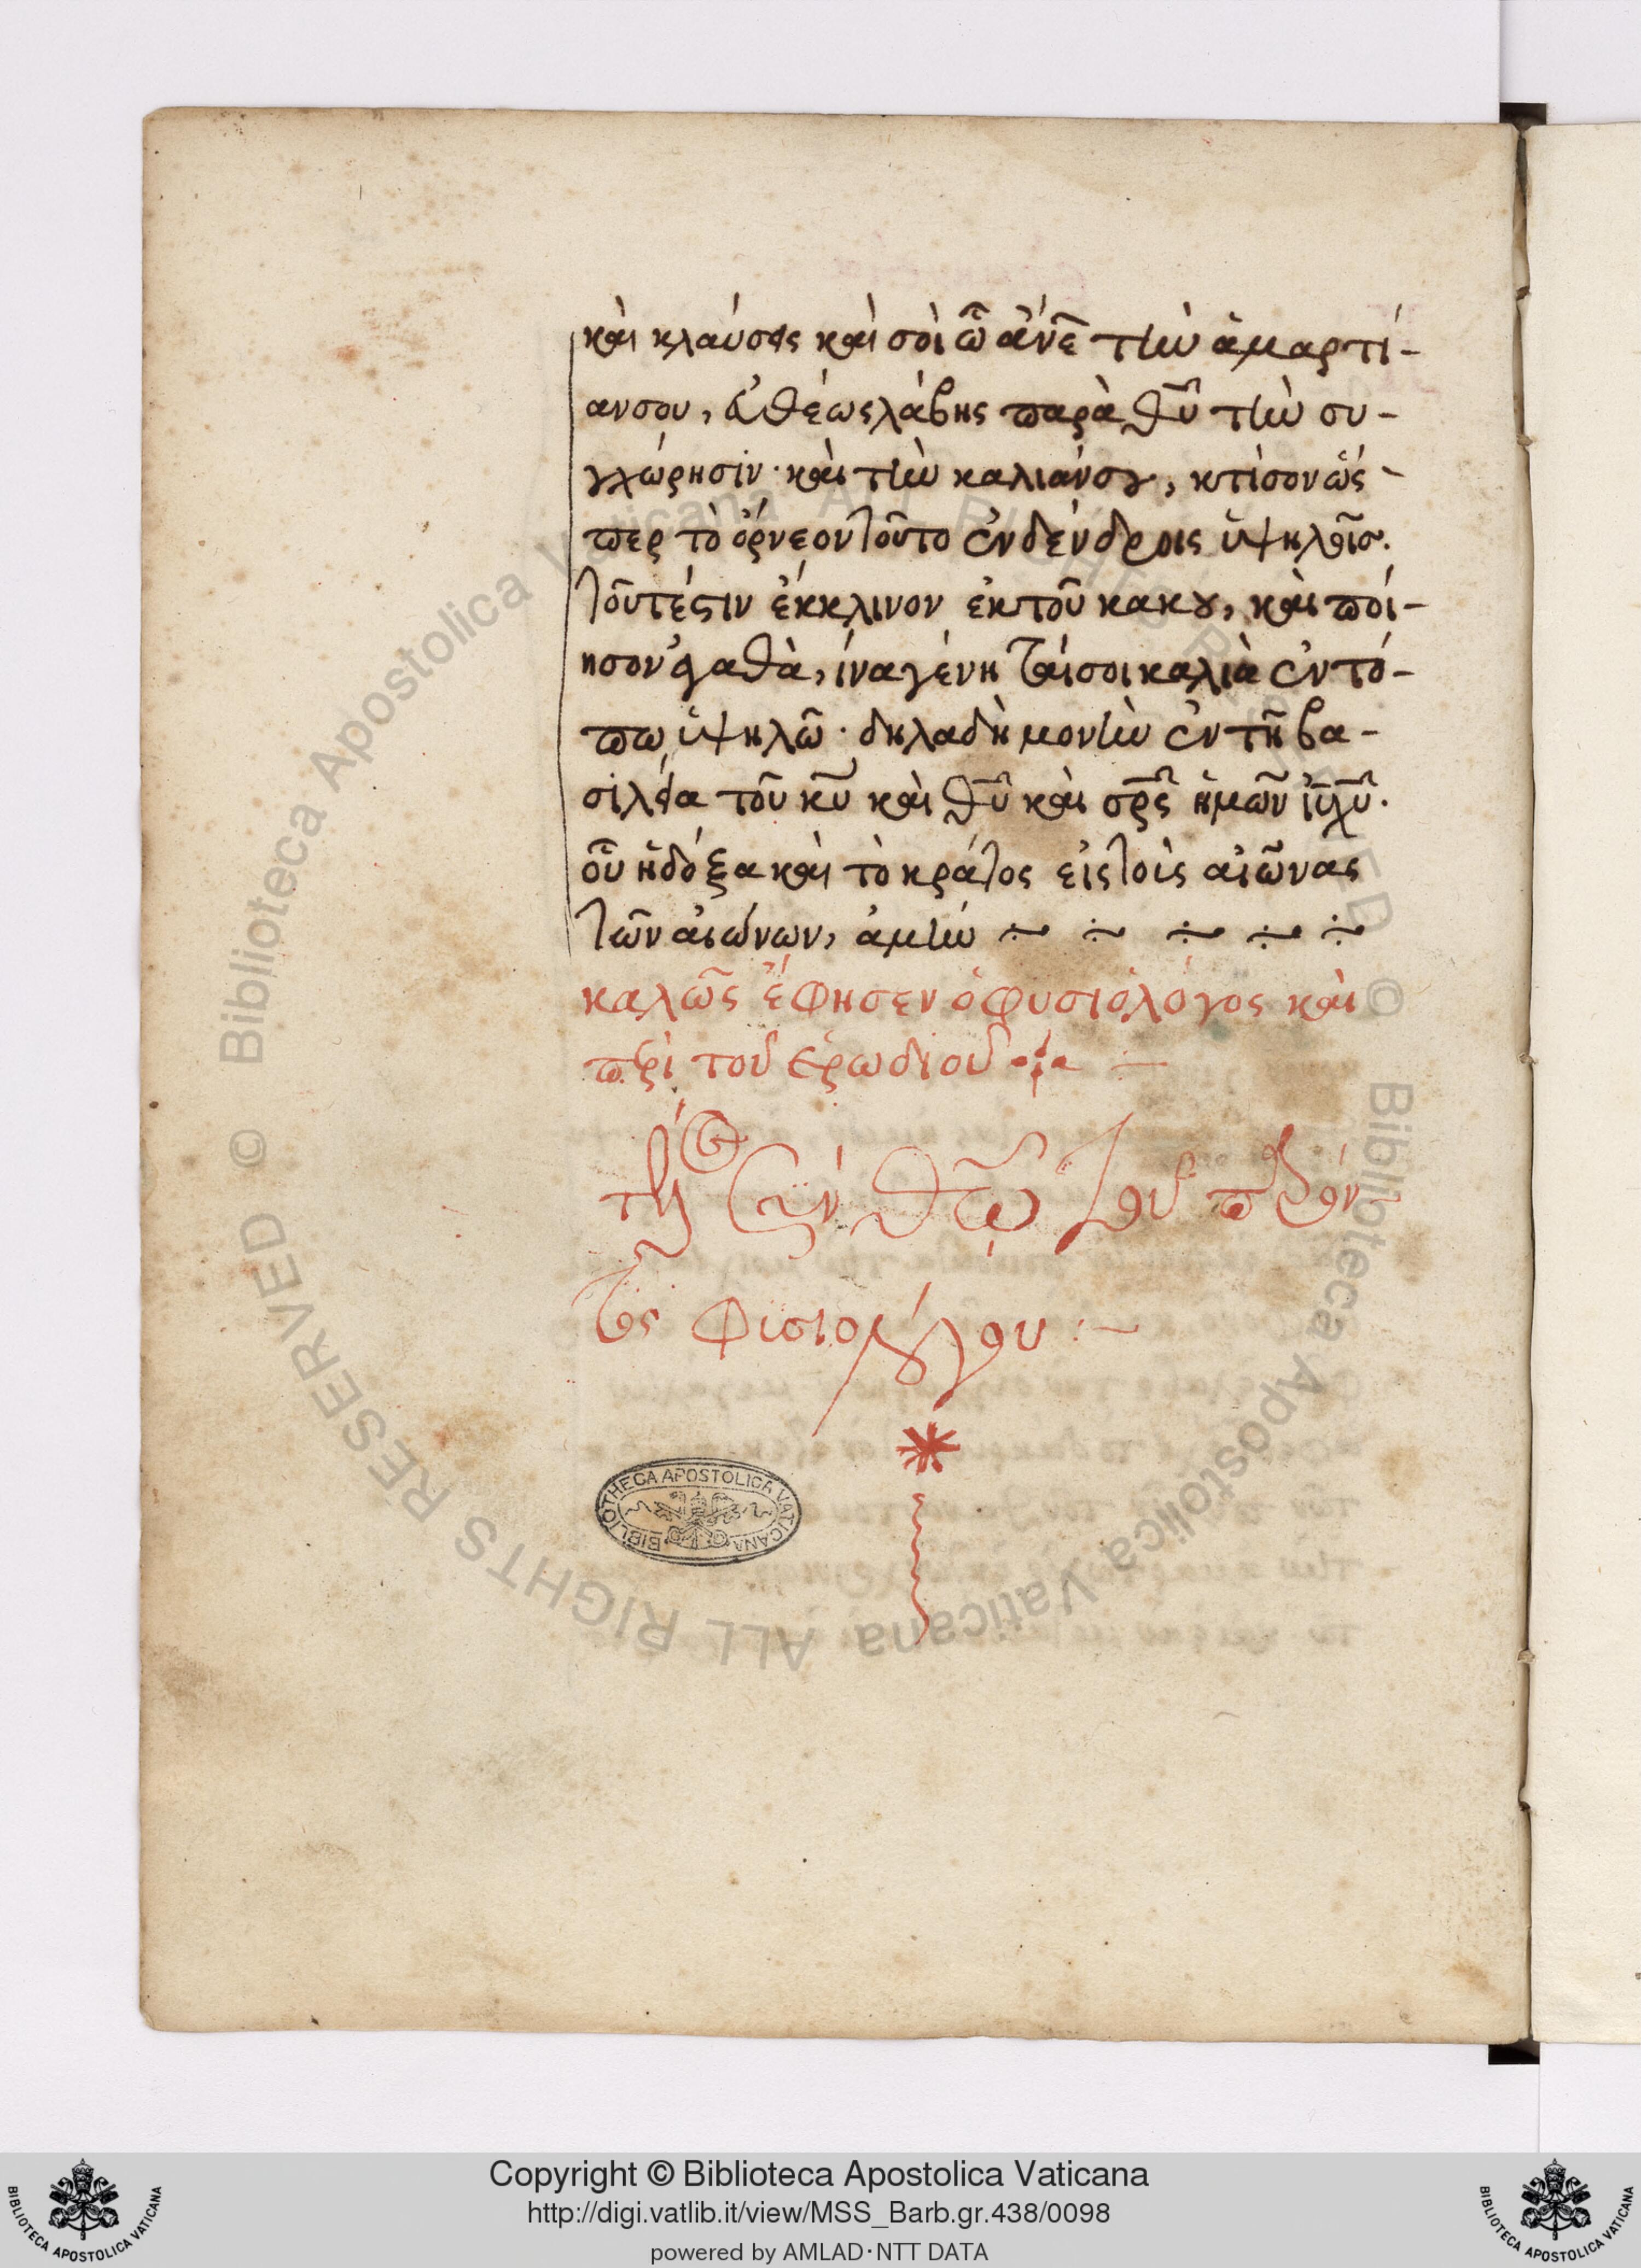 καὶ κλαύσεις καὶ σὺ ὦ ἄνε τὴν ἁμαρτί-
αν σου, εὐθέως λάβης παρὰ θυ τὴν συ-
γχώρησιν· καὶ τὴν καλιάν σου, κτίσον ὥς-
περ τὸ ὄρνεον τοῦτο ἐν δένδροις ὑψηλοῖσ.
τοῦτέστιν ἔκκλινον ἐκ τοῦ κακου, καὶ ποί-
ησον ἀγαθὰ, ἵνα γένηταί σοι καλιὰ ἐν τό-
πω ὑψηλῶ· δηλαδὴ μονὴν ἐν τῆ βα-
σιλεία τοῦ κυ καὶ θυ καὶ σρς ἡμῶν ιυ χυ.
οὗ ἡ δόξα καὶ τὸ κράτος εἰς τοὺς αἰῶνας
τῶν αἰώνων, ἀμὴν
καλῶς ἔφησεν ὁ φυσιολόγος καὶ
περὶ τοῦ ἐρωδιοῦ
σὺν θῶ τοῦ παρόν-
τος φισιολόγου :-
BIBLIOTHECA APOSTOLICA VATICANA
© Biblioteca Apostolica Vaticana ALL RIGHTS RESERVED
© Biblioteca Apostolica Vaticana ALL RIGHTS RESERVED
Copyright © Biblioteca Apostolica Vaticana
http://digi.vatlib.it/view/MSS_Barb.gr.438/0098
powered by AMLAD·NTT DATA
BIBLIOTECA APOSTOLICA VATICANA
BIBLIOTECA APOSTOLICA VATICANA